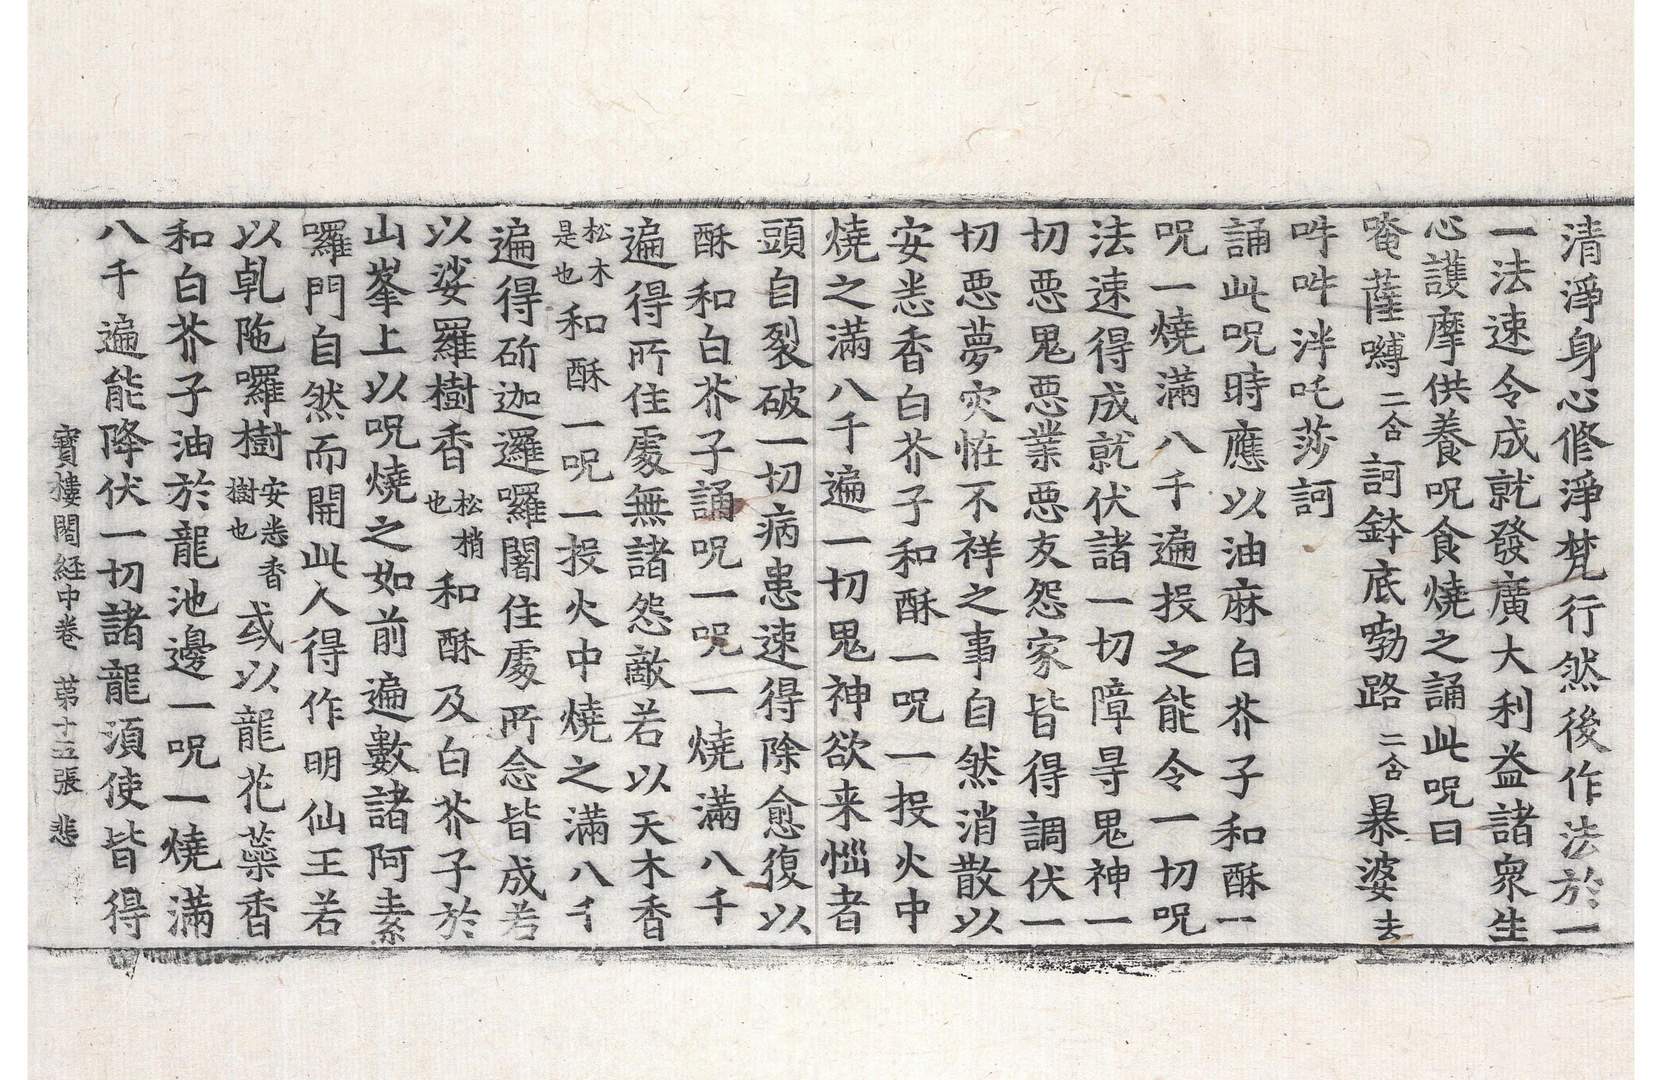 清淨身心修淨梵行然後作法於一
一法速令成就發廣大利益諸衆生
心護摩供養呪食燒之誦此呪曰
唵薩嚩二合訶鉢底嘞路二合暴婆去
吽吽泮吒莎訶
誦此呪時應以油麻白芥子和酥一
呪一燒滿八千遍投之能令一切呪
法速得成就伏諸一切障㝵鬼神一
切惡鬼惡業惡友怨家皆得調伏一
切惡夢灾恠不祥之事自然消散以
安悉香白芥子和酥一呪一投火中
燒之滿八千遍一切鬼神欲来惱者
頭自裂破一切病患速得除愈復以
酥和白芥子誦呪一呪一燒滿八千
遍得所住處無諸怨敵若以天木香
松木是也和酥一呪一投火中燒之滿八千
遍得斫迦邏囉闍住處所念皆成若
以娑羅樹香松梢也和酥及白芥子於
山峯上以呪燒之如前遍數諸阿素
囉門自然而開此人得作明仙王若
以乹陁囉樹安悉香樹也或以龍花蘂香
和白芥子油於龍池邊一呪一燒滿
八千遍能降伏一切諸龍湏使皆得
寶樓閣経中卷 苐十五張 悲